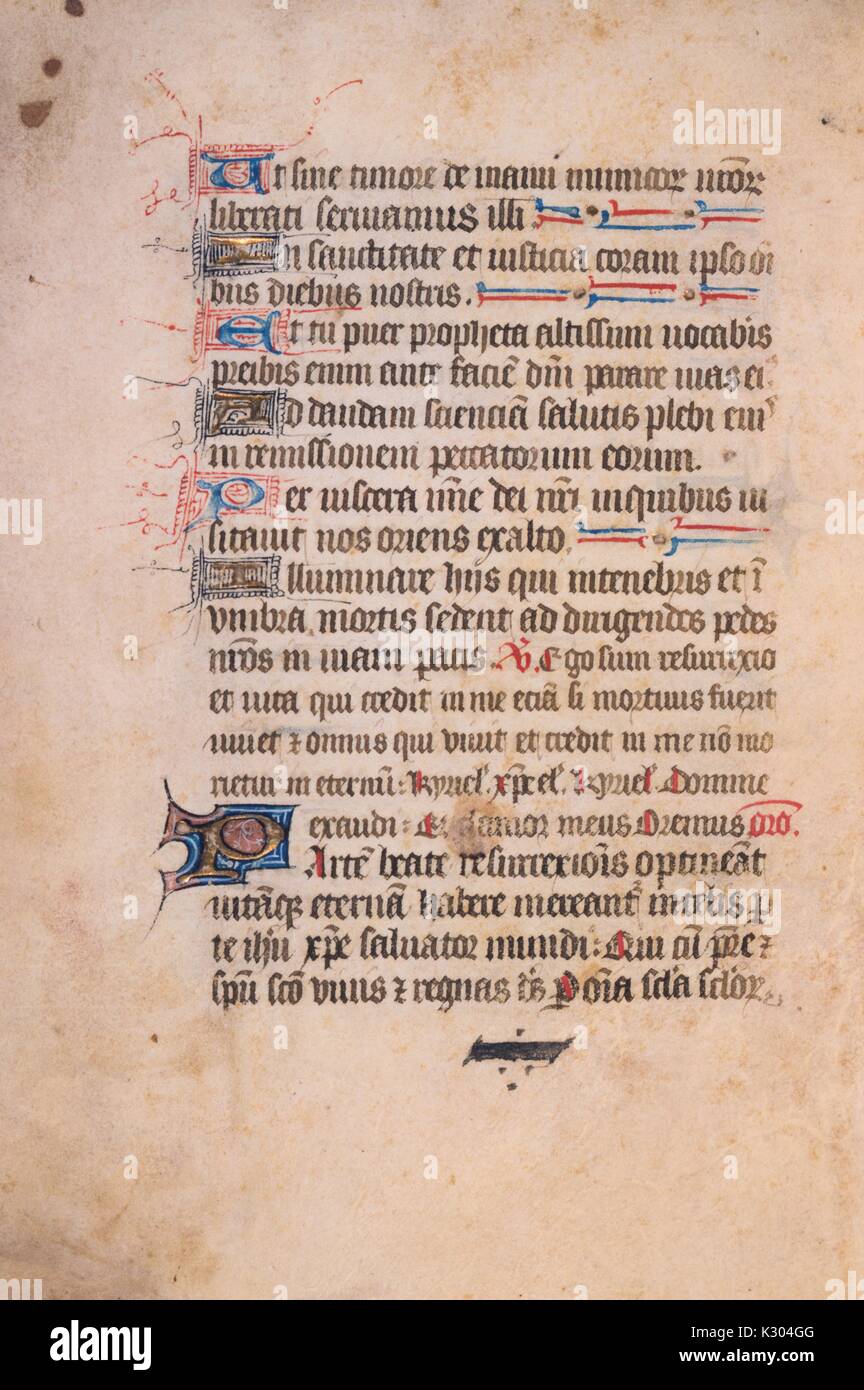 Ut sine timore de manu inimicoꝝ nr̄oꝝ
liberati seruiamus illi.
In sanctitate et iusticia coram ipso oī
bus diebus nostris.
Et tu puer propheta altissimi uocabis
preibis enim ante faciē dn̄i parare uias ei
Ad dandam scienciā salutis plebi eiuꝰ
in remissionem peccatorum eorum.
Per uiscera mīe dei nr̄i inquibus ui
sitauit nos oriens exalto.
Illuminare hijs qui intenebris et ī
vmbra mortis sedent ad dirigendos pedes
nr̄os in uiam pacis. Ego sum resurrexio
et uita qui credit in me eciā si mortuus fuerit
uiuet ⁊ omnis qui viuit et credit in me nō mo
rietur in eternū: kyriel. xp̄el. kyriel. Domine
exaudi: Et clamor meus Oremus oro.
PArtē beate resurrexiōis optineāt
uitāqꝫ eternā habere mereant' in celis ꝑ
te ih̄u xp̄e saluator mundi: Qui cū pr̄e ⁊
sp̄u scō viuis ⁊ regnas ds̄ ꝑ oīa sc̄la sc̄loꝝ
alamy stock photo
alamy
K304GG
www.alamy.com